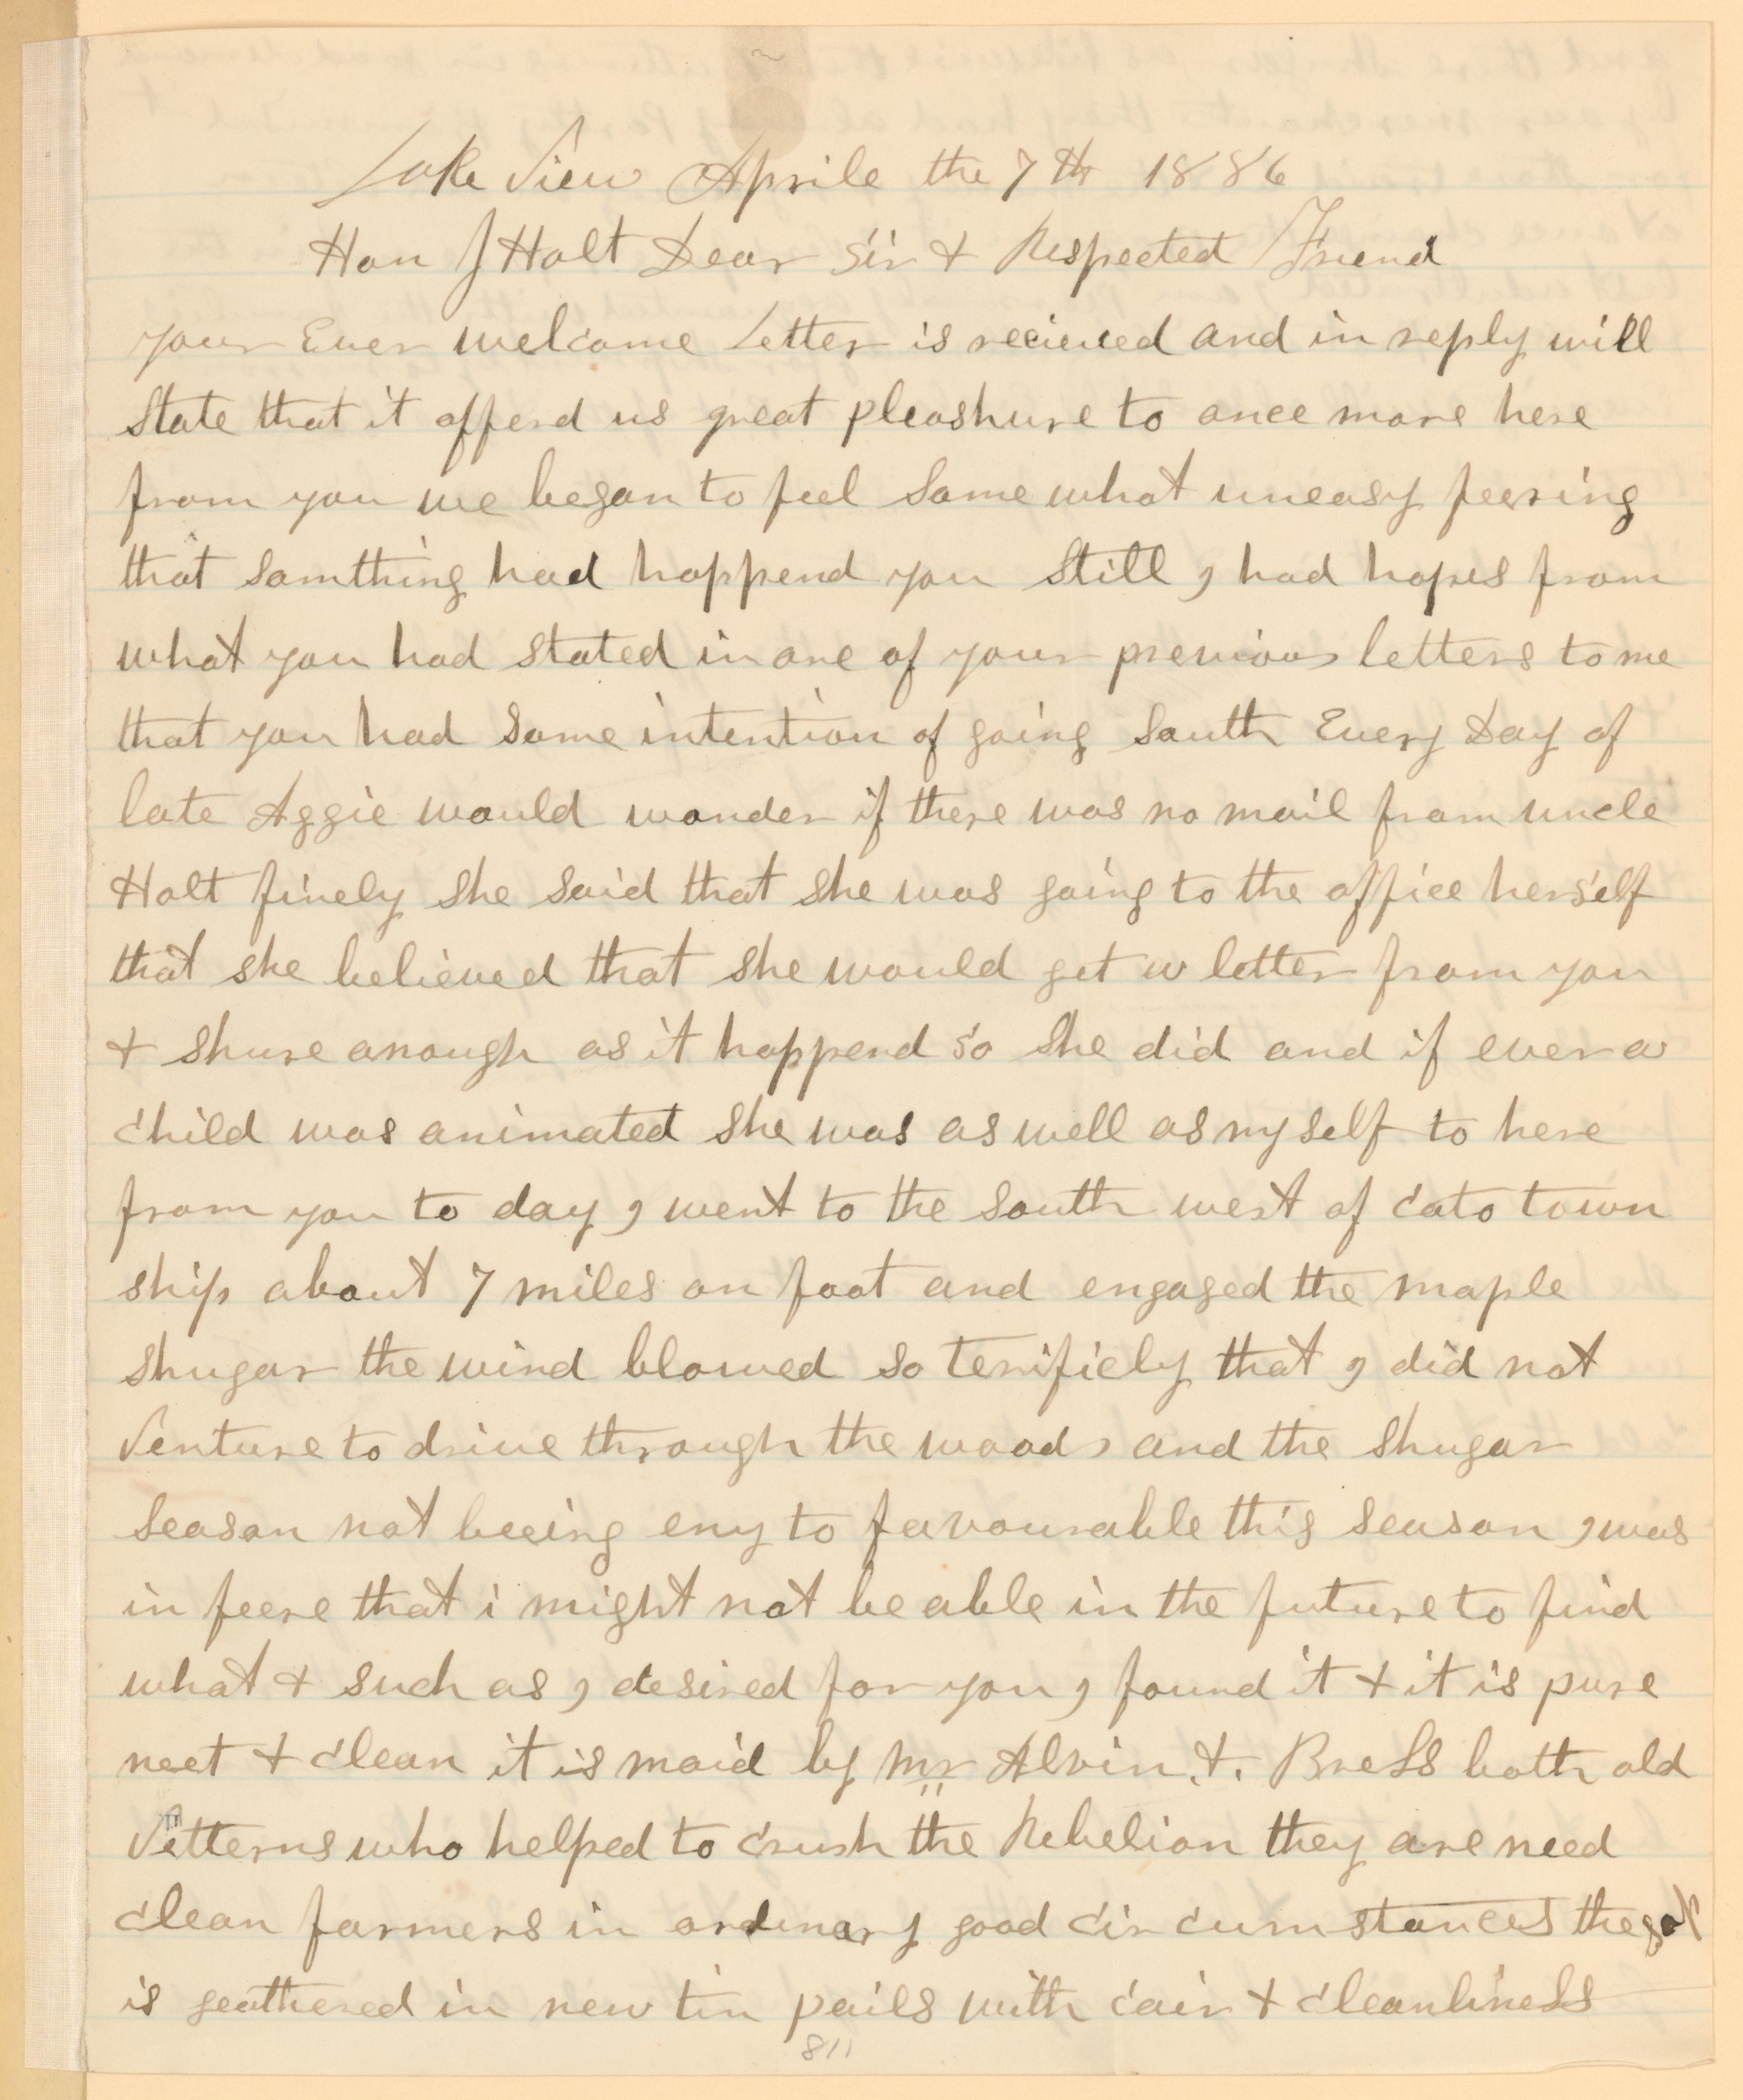 Lake View Aprile the 7th 1886
Hon J Holt Dear Sir & Respected Friend
your Ever welcome Letter is recieved and in reply will
State that it afferd us great pleashure to once more here
from you we began to feel Some what uneasy feering
that Somthing had happend you Still I had hopes from
what you had stated in one of your previous letters to me
that you had Some intention of going South Every Day of
late Aggie would wonder if there was no mail from uncle
Holt finely She Said that She was going to the office herself
that she believed that She would get a letter from you
& shure anough as it happend So She did and if ever a
child was animated She was as well as myself to here
from you to day I went to the South west of Cato town
ship about 7 miles on foot and engaged the maple
shugar the wind blowed so terificly that I did not
Venture to drive through the woods and the Shugar
Season not beeing eny to favourable this Season I was
in feere that i might not be able in the future to find
what & such as I desired for you I found it & it is pure
neet & clean it is maid by Mr Alvin. &. Bress both old
Vetterns who helped to crush the Rebelion they are need
clean farmers in ordenary good circumstances the sap
is geathered in new tin pails with cair & cleanliness
811